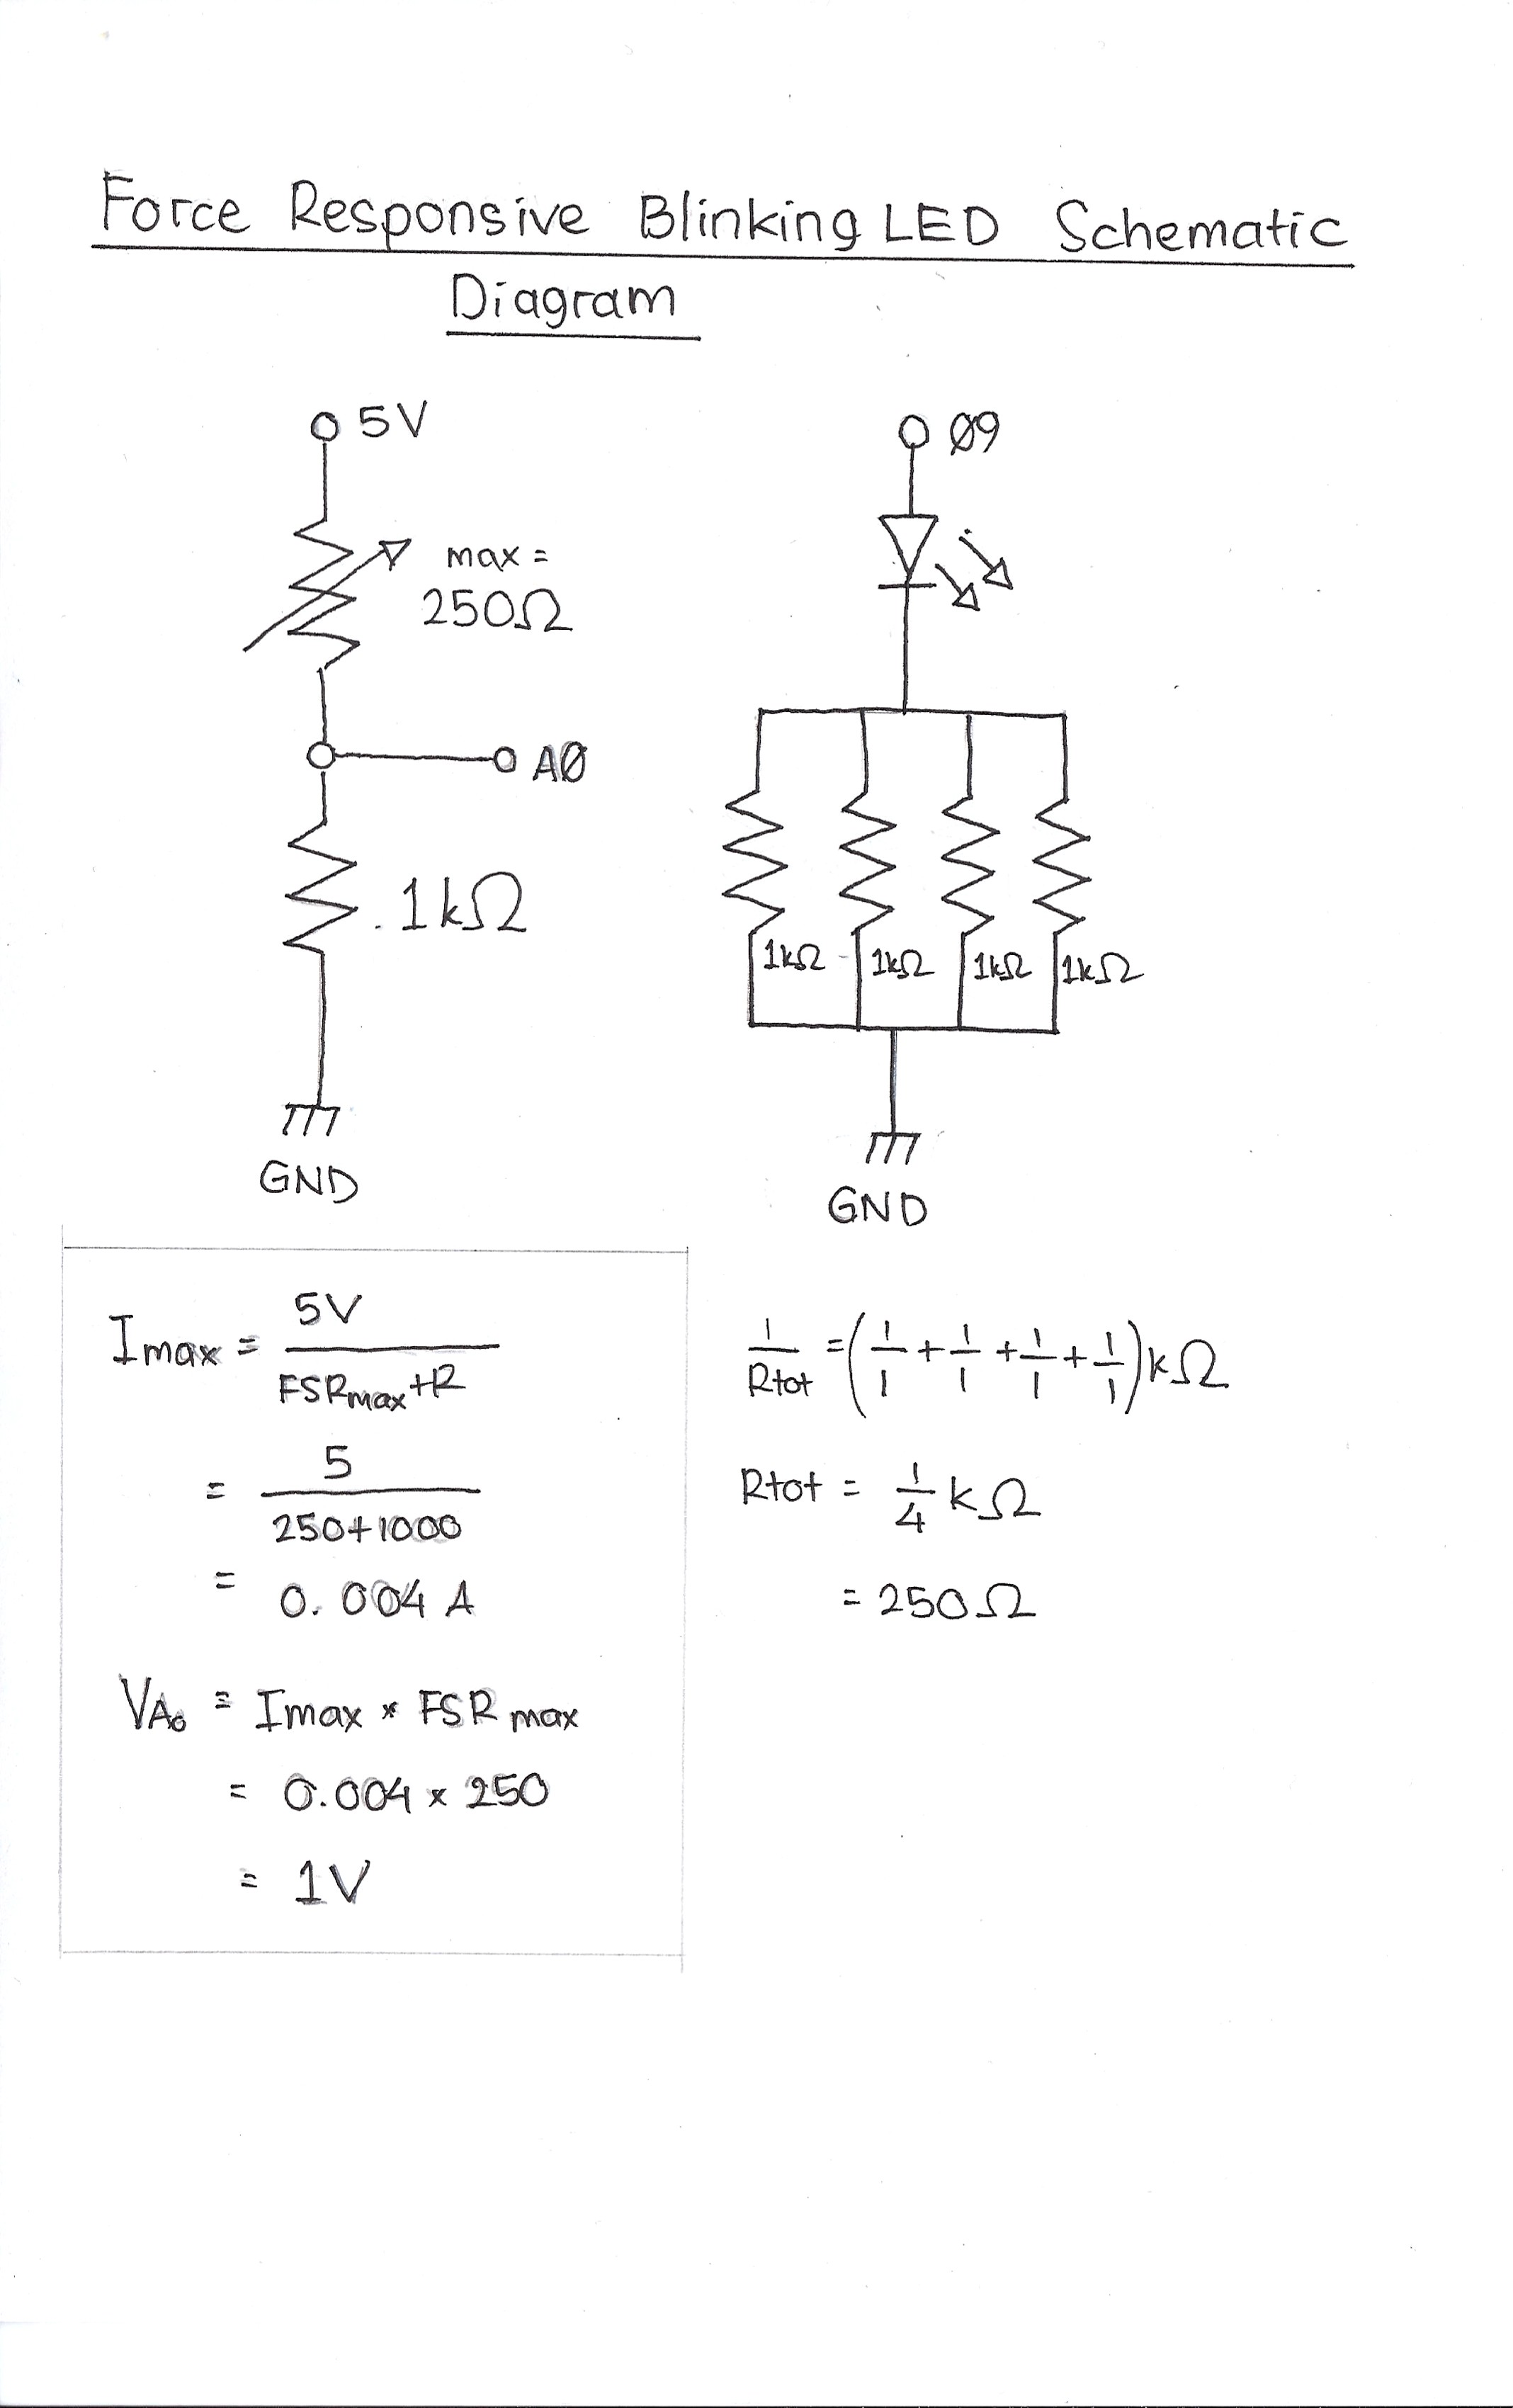 Force Responsive Blinking LED Schematic
Diagram
5V
max =
250Ω
AØ
1kΩ
GND
Ø9
1kΩ 1kΩ 1kΩ 1kΩ
GND
Imax = 5V / FSRmax+R
= 5 / 250+1000
= 0.004 A
VA0 = Imax * FSR max
= 0.004 x 250
= 1V
1/Rtot = (1/1 + 1/1 + 1/1 + 1/1) kΩ
Rtot = 1/4 kΩ
= 250Ω